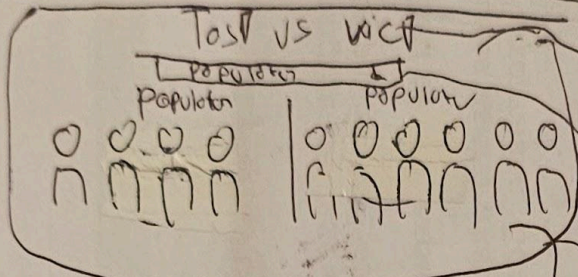 Tost vs vict
populaton
populaton populaton